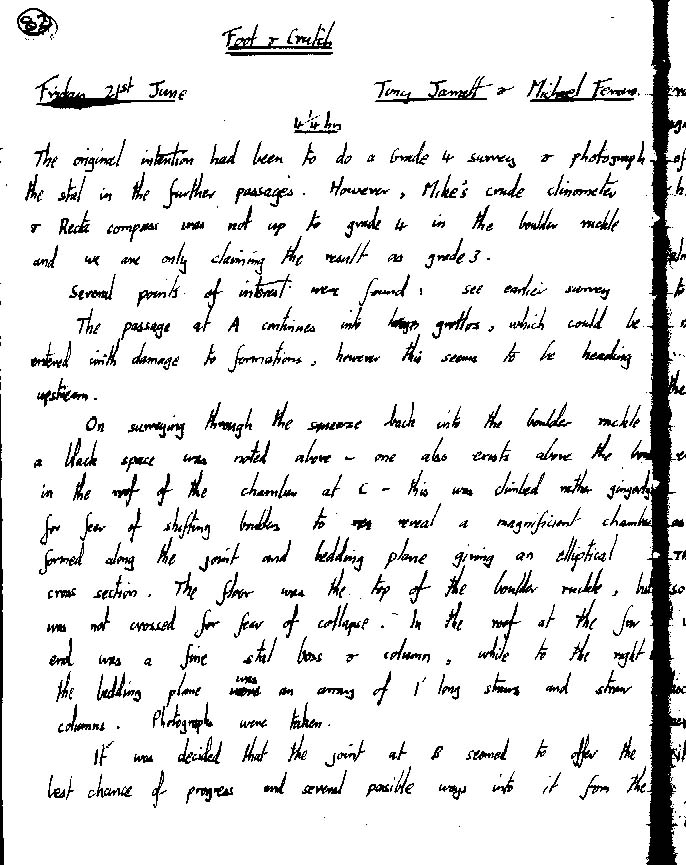 82
Foot & Crutch
Friday 21st June Tony Jarratt & Michael
4¼ hrs
The original intention had been to do a Grade 4 survey & photograph
the stal in the further passages. However, Mike's crude clinometer
& Recta compass was not up to grade 4 in the boulder ruckle
and we are only claiming the result as grade 3.
Several points of interest were found: see earlier survey
The passage at A continues into grottos, which could be
entered with damage to formations, however this seems to be heading
upstream.
On surveying through the squeeze back into the boulder ruckle
a black space was noted above - one also exists above the
in the roof of the chamber at C - this was climbed rather gingerly
for fear of shifting boulders to reveal a magnificent chamber
formed along the joint and bedding plane giving an elliptical
cross section. The floor was the top of the boulder ruckle, but
was not crossed for fear of collapse. - In the roof at the far
end was a fine stal boss & column, while to the right
the bedding plane was an array of 1' long straws and straw
columns. Photographs were taken.
It was decided that the joint at B seemed to offer the
best chance of progress and several possible ways into it from the